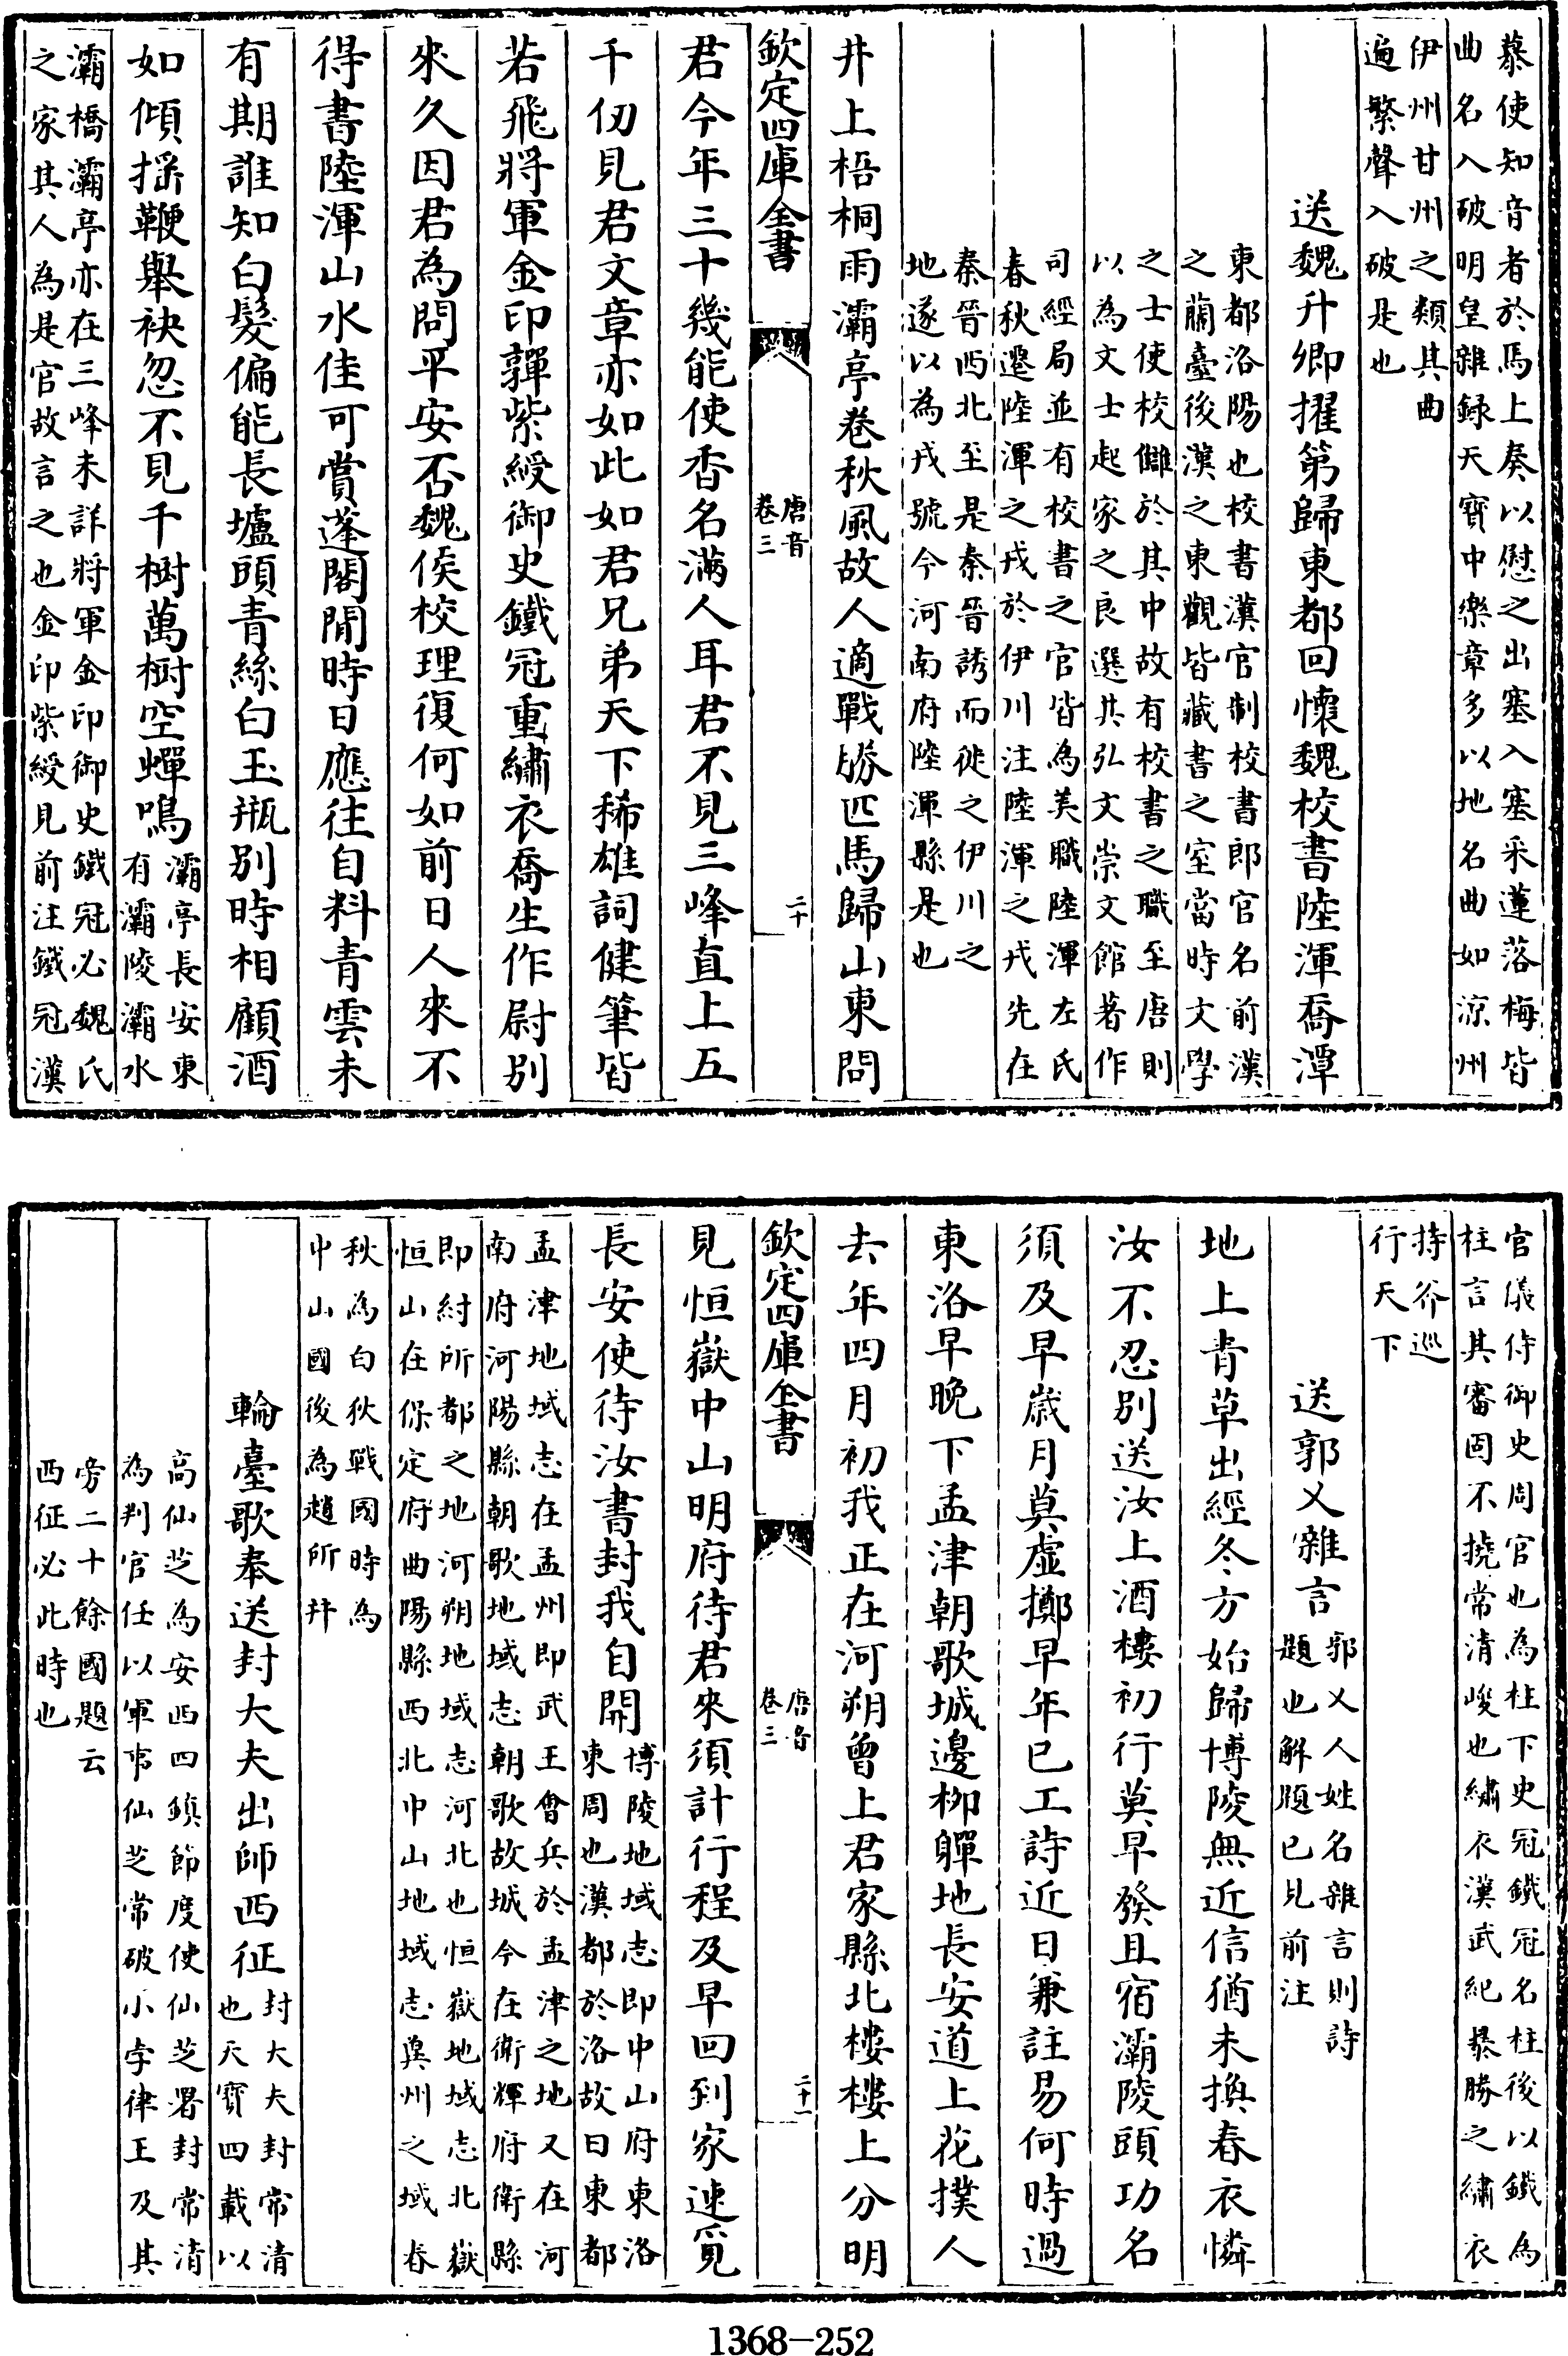 慕使知音者於馬上奏以慰之出塞入塞采蓮落梅皆
曲名入破明皇雜録天寶中樂章多以地名曲如涼州
伊州甘州之類其曲
遍繁聲入破是也
送魏升卿擢第歸東都回懷魏校書陸渾喬潭
東都洛陽也校書漢官制校書郎官名前漢
之蘭臺後漢之東觀皆藏書之室當時文學
之士使校讎於其中故有校書之職至唐則
以為文士起家之良選其弘文崇文館著作
司經局並有校書之官皆為美職陸渾左氏
春秋遷陸渾之戎於伊川注陸渾之戎先在
秦晉西北至是秦晉誘而徙之伊川之
地遂以為戎號今河南府陸渾縣是也
井上梧桐雨灞亭卷秋風故人適戰勝匹馬歸山東問
欽定四庫全書
唐音
卷三
二十
君今年三十幾能使香名滿人耳君不見三峰直上五
千仞見君文章亦如此如君兄弟天下稀雄詞健筆皆
若飛將軍金印嚲紫綬御史鐵冠重繡衣喬生作尉别
來久因君為問平安否魏侯校理復何如前日人來不
得書陸渾山水佳可賞蓬閣閒時日應往自料青雲未
有期誰知白髮偏能長壚頭青絲白玉瓶别時相顧酒
如傾揺鞭舉袂忽不見千樹萬樹空蟬鳴
灞亭長安東
有灞陵灞水
灞橋灞亭亦在三峰未詳將軍金印御史鐵冠必魏氏
之家其人為是官故言之也金印紫綬見前注鐵冠漢
官儀侍御史周官也為柱下史冠鐵冠名柱後以鐵為
柱言其審固不撓常清峻也繡衣漢武紀暴勝之繡衣
持斧巡
行天下
送郭乂雜言
郭乂人姓名雜言則詩
題也解題已見前注
地上青草出經冬方始歸博陵無近信猶未換春衣憐
汝不忍别送汝上酒樓初行莫早發且宿灞陵頭功名
須及早歲月莫虛擲早年已工詩近日兼註易何時過
東洛早晚下孟津朝歌城邊柳嚲地長安道上花撲人
去年四月初我正在河朔曾上君家縣北樓樓上分明
欽定四庫全書
唐音
卷三
二十一
見恒嶽中山明府待君來須計行程及早回到家速覓
長安使待汝書封我自開
博陵地域志即中山府東洛
東周也漢都於洛故曰東都
孟津地域志在孟州即武王會兵於孟津之地又在河
南府河陽縣朝歌地域志朝歌故城今在衛輝府衛縣
即紂所都之地河朔地域志河北也恒嶽地域志北嶽
恒山在保定府曲陽縣西北中山地域志冀州之域春
秋為白狄戰國時為
中山國後為趙所并
輪臺歌奉送封大夫出師西征
封大夫封常清
也天寶四載以
高仙芝為安西四鎮節度使仙芝署封常清
為判官任以軍事仙芝常破小字律王及其
旁二十餘國題云
西征必此時也
1368-252